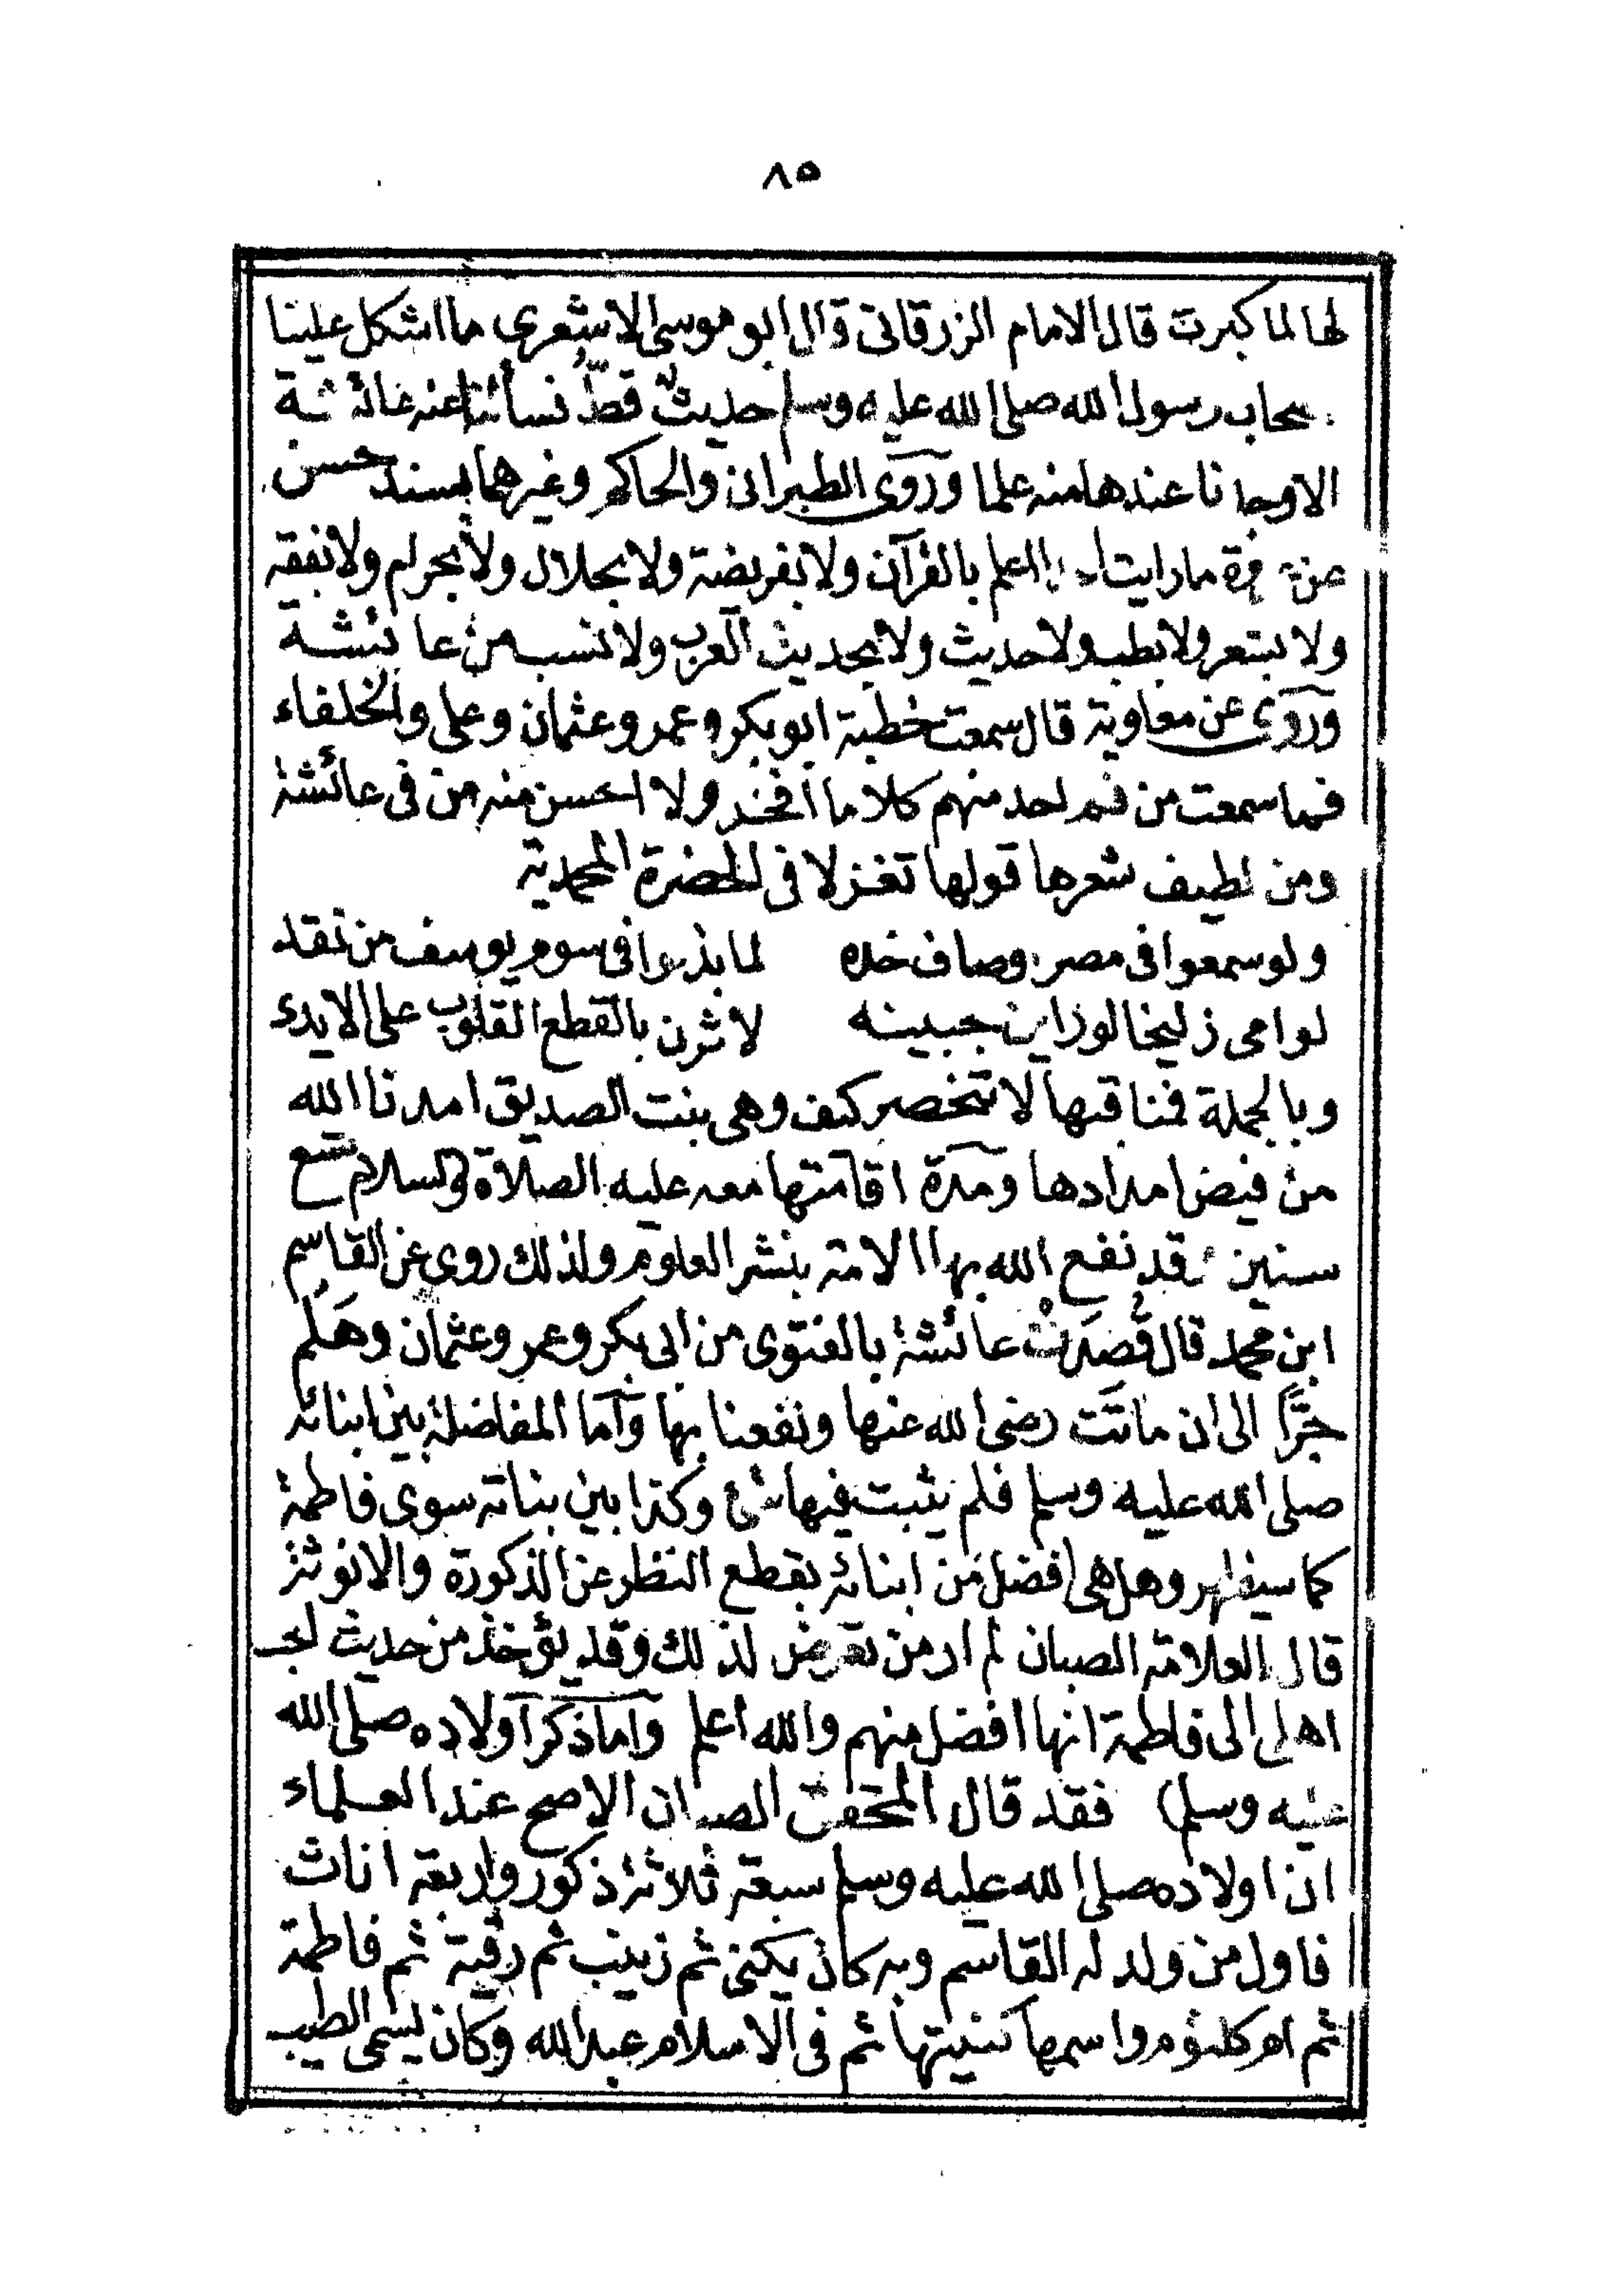 ٨٥
لها لما كبرت قال الامام الزرقانى قال ابو موسى الاشعرى ما اشكل علينا
اصحاب رسول الله صلى الله عليه وسلم حديثٌ قطّ فسألنا عنه عائشة
الا وجدنا عندها منه علما وروى الطبرانى والحاكم وغيرهما بسند حسن
عن عروة ما رايت احدا اعلم بالقرآن ولا بفريضة ولا بحلال ولا بحرام ولا بفقه
ولا بشعر ولا بطب ولا حديث ولا بحديث العرب ولا نسب من عائشة
وروى عن معاوية قال سمعت خطبة ابو بكر وعمر وعثمان وعلى والخلفاء
فما سمعت من فم احد منهم كلاما افخر ولا احسن منه من فى عائشة
ومن لطيف شعرها قولها تغزلا فى الحضرة المحمدية
ولو سمعوا فى مصر اوصاف خده لما بذلوا فى سوم يوسف من نقد
لوامى زليخا لو راين جبينه لاثرن بالقطع القلوب على الايدى
وبالجملة فمناقبها لا تنحصر كيف وهى بنت الصديق امدنا الله
من فيض امدادها ومدة اقامتها معه عليه الصلاة والسلام تسع
سنين وقد نفع الله بها الامة بنشر العلوم ولذلك روى عن القاسم
ابن محمد قال قصدت عائشة بالفتوى من ابى بكر وعمر وعثمان وهَلُم
جَرًّا الى ان ماتت رضى الله عنها ونفعنا بها وأما المفاضلة بين ابنائه
صلى الله عليه وسلم فلم يثبت فيها شئ وكذا بين بناته سوى فاطمة
كما سيظهر وهل هى افضل من ابنائه بقطع النظر عن الذكورة والانوثة
قال العلامة الصبان لم ار من تعرض لذلك وقد يؤخذ من حديث احب
اهلى الى فاطمة انها افضل منهم والله اعلم وأما ذكر أولاده صلى الله
عليه وسلم) فقد قال المحقق الصبان الاصح عند العلماء
ان اولاده صلى الله عليه وسلم سبعة ثلاثة ذكور واربعة اناث
فاول من ولد له القاسم وبه كان يكنى ثم زينب ثم رقية ثم فاطمة
ثم ام كلثوم واسمها كنيتها ثم فى الاسلام عبد الله وكان يسمى الطيب